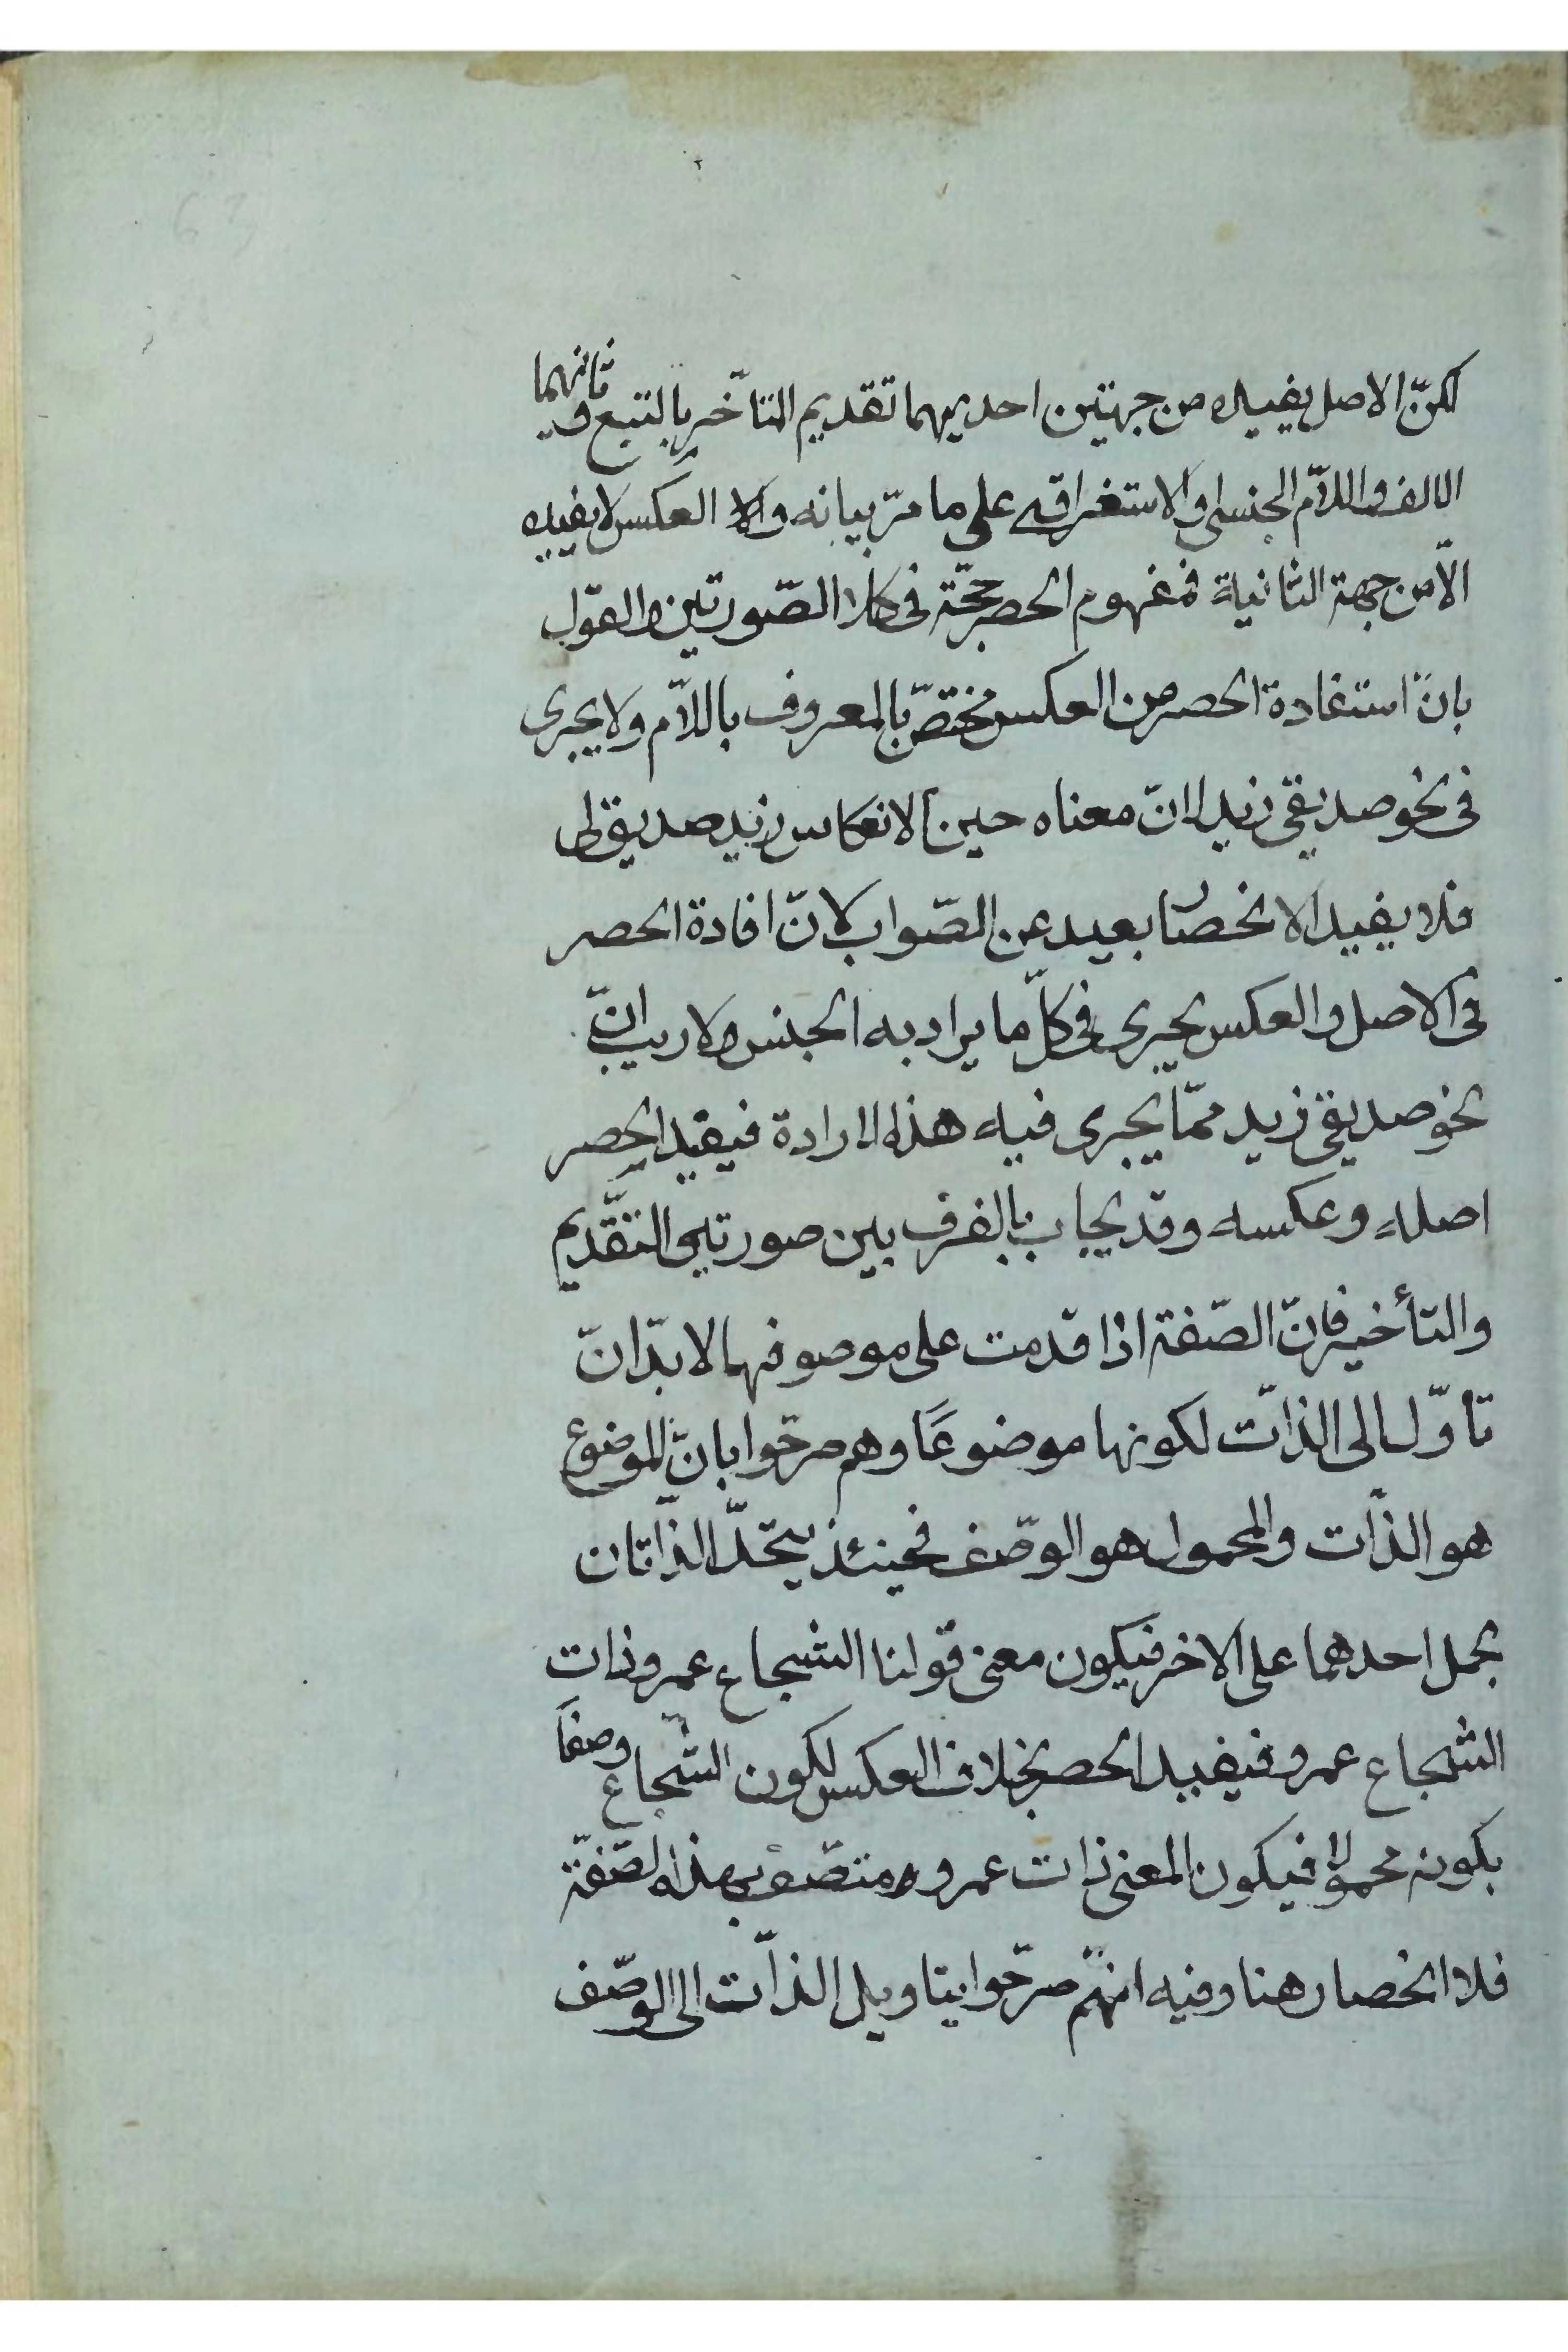 لكنّ الاصل يفيده من جهتين احديهما تقديم المتأخّر بالتتبع وثانيهما
الالف واللاّم الجنسى والاستغراقى على ما مرّ بيانه والا العكس لا يفيده
الاّ من جهة الثانية فمفهوم الحصر حجّة فى كلا الصّورتين والقول
بانّ استفادة الحصر من العكس مختصّ بالمعروف باللاّم ولا يجرى
فى نحو صديقى زيد اذ انّ معناه حين الانعكاس زيد صديق لى
فلا يفيد الانحصار بعيد عن الصّواب لانّ افادة الحصر
فى الاصل والعكس يجرى فى كلّ ما يراد به الجنس ولا ريب انّ
نحو صديقى زيد ممّا يجرى فيه هذه الارادة فيفيد الحصر
اصله وعكسه وقد يجاب بالفرق بين صورتى التّقديم
والتأخير فانّ الصّفة اذا قدمت على موصوفها لا بدّ انّ
تاوّل الى الذّات لكونها موضوعًا وهم صرّحوا بانّ الموضوع
هو الذّات والمحمول هو الوصّف فحينئذ يتّحد الذّاتان
بحمل احدهما على الاخر فيكون معنى قولنا الشجاع عمرو ذات
الشجاع عمرو فيفيد الحصر بخلاف العكس لكون الشّجاع وصفًا
بكونه محمولا فيكون المعنى ذات عمرو متصّف بهذه الصّفة
فلا انحصار هنا وفيه انهّم صرّحوا بتاويل الذّات الى الوصّف
63